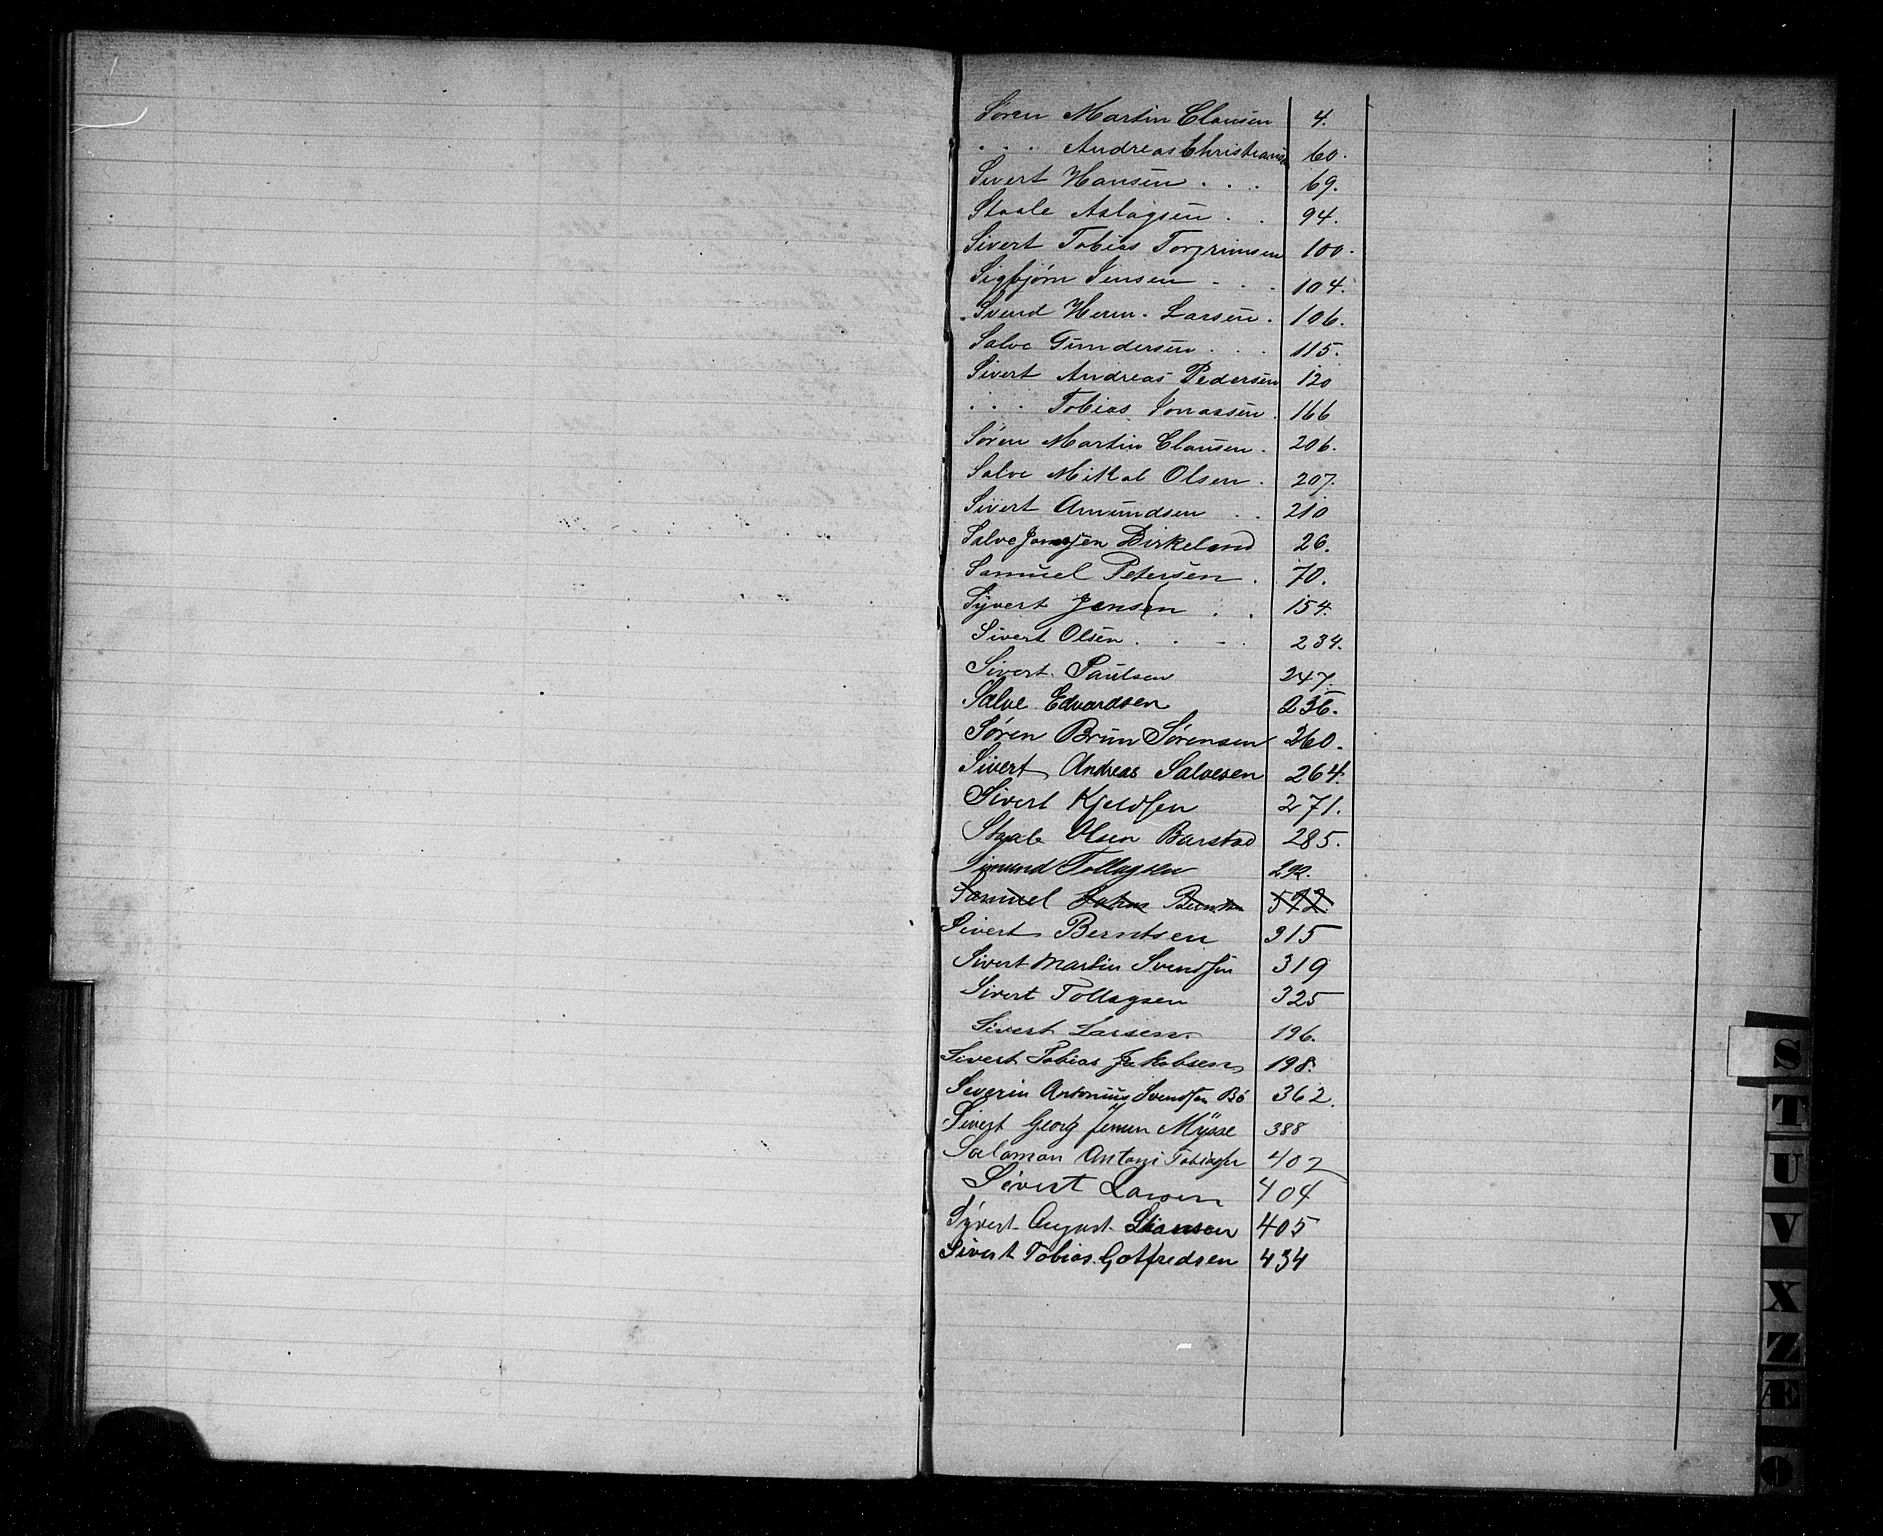 Søren Martin Clausen 4.
. . . Andreas Christians 60.
Sivert Hansen . . . 69.
Staale Aslagsen . . 94.
Sivert Tobias Torgrimsen 100.
Sigbjørn Jensen . . . 104.
Svend Herm. Larsen . 106.
Salve Gundersen . . . 115.
Sivert Andreas Pedersen 120
. . . Tobias Jonassen . 166
Søren Martin Clausen . 206.
Salve Mikal Olsen . 207.
Sivert Amundsen . . 210
Salve Jonsen Birkeland 26.
Samuel Petersen . 70.
Syvert Jensen . . 154.
Sivert Olsen . . . . 234.
Sivert Paulsen 247.
Salve Edvardsen 236.
Søren Brun Sørensen 260.
Sivert Andreas Salvesen 264.
Sivert Kjeldsen 271.
Staale Olsen Barstad 285.
Simund Tollagsen
Samuel 572.
Sivert Berntsen 315
Sivert Martin Svendsen 319
Sivert Tollagsen 325
Sivert Larsen 196.
Sivert Tobias Jakobsen 198.
Severin Antonius Svendsen Bö 362.
Sivert Georg Jensen Mysse 388
Salomon Antoni Tobiassen 402
Sivert Larsen 404
Syvert August 405
Sivert Tobias Gotfredsen 434
S
T
U
V
X
Z
Æ
Ø